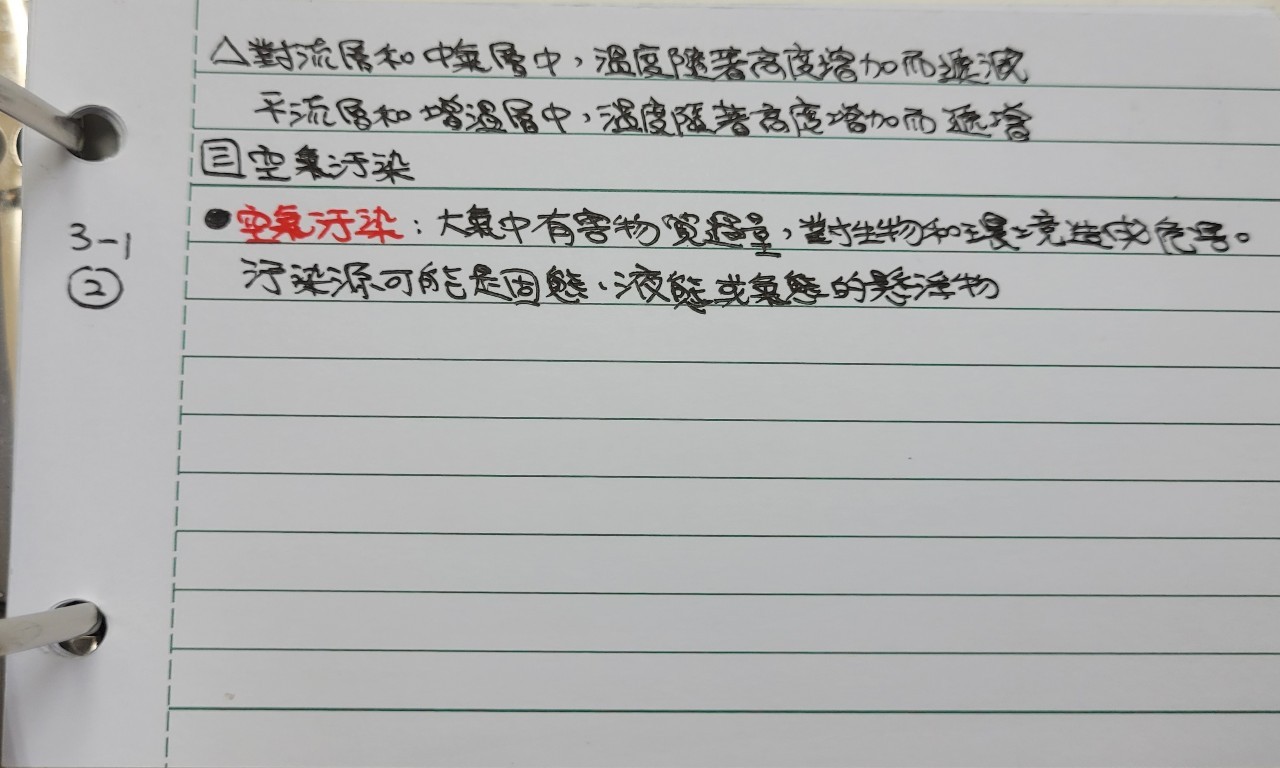 △對流層和中氣層中，溫度隨著高度增加而遞減
平流層和增溫層中，溫度隨著高度增加而遞增
三 空氣汙染
●空氣汙染：大氣中有害物質超量，對生物和環境造成危害。
汙染源可能是固態、液態或氣態的懸浮物
3-1
②